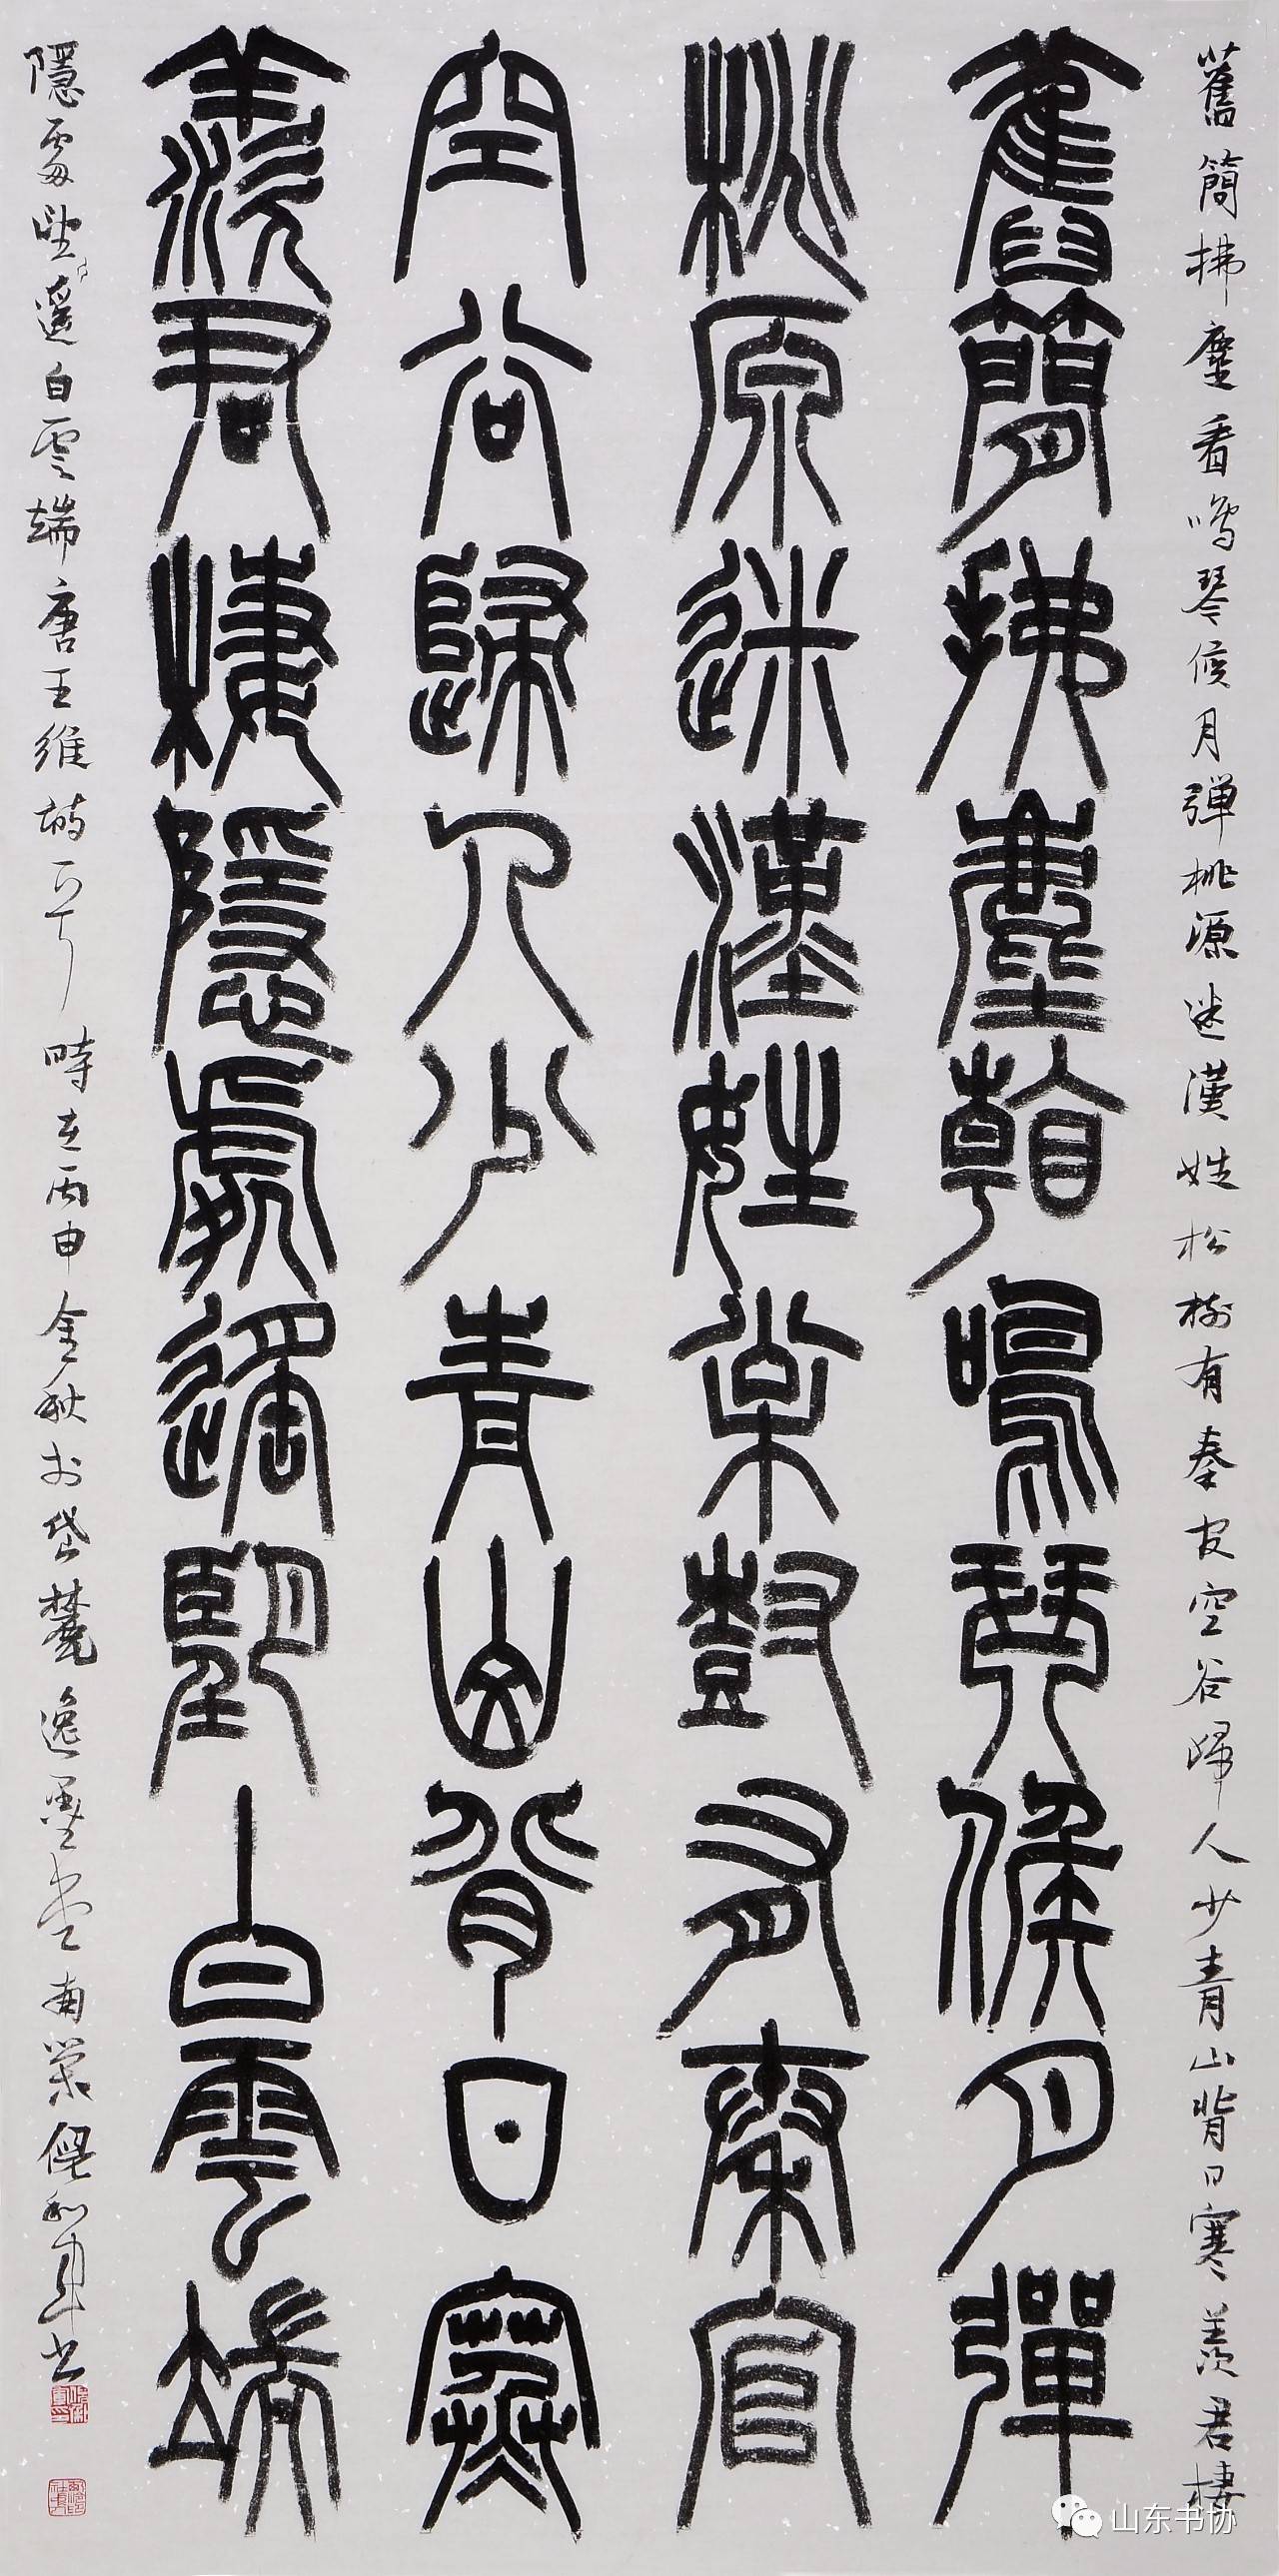 舊簡拂塵看鳴琴候月彈桃源迷漢姓松樹有秦官空谷歸人少青山背日寒羨君棲
舊簡拂塵看鳴琴候月彈
桃原迷漢姓松樹有秦官
空谷歸人少青山背日寒
羨君棲隱處遙望白雲端
隱處望遙白雲端唐王維詩 時在丙申金秋於岱麓逸墨堂南 倪和軍書
山东书协